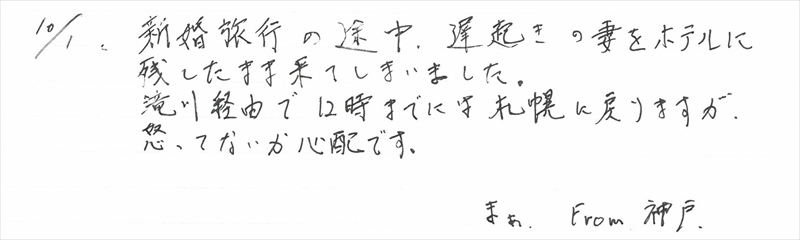 10/1. 新婚旅行の途中、遅起きの妻をホテルに
残したまま来てしまいました。
滝川経由で12時までには札幌に戻りますが、
怒ってないか心配です。
まぁ. From 神戸.